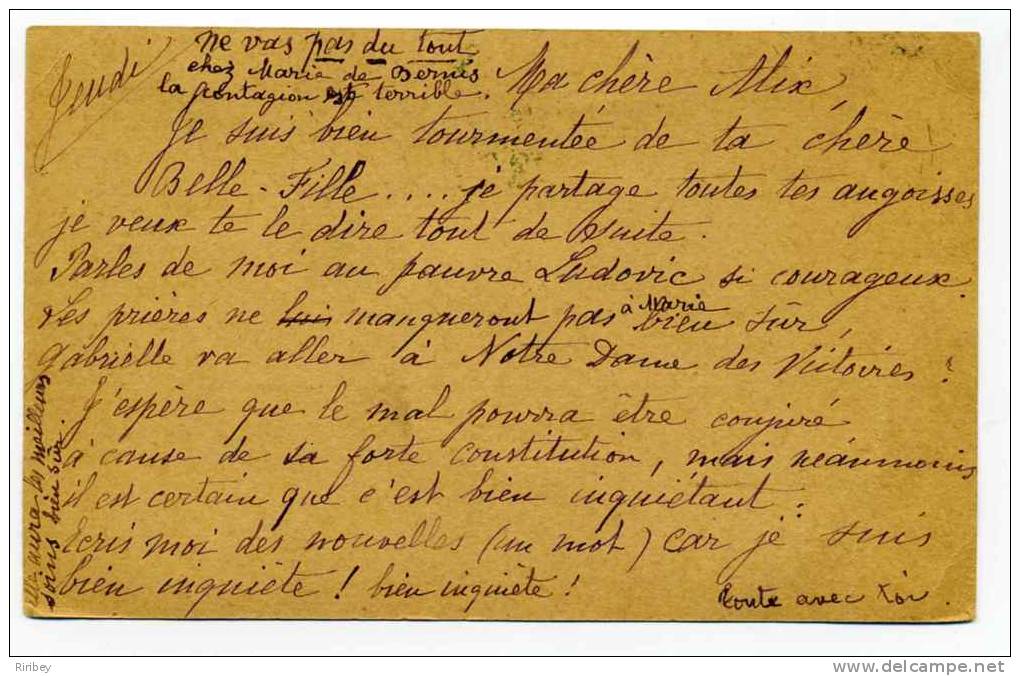 Jeudi
ne vas pas du tout
chez Marie de Bernis
la contagion est terrible.
Ma chère Alix,
je suis bien tourmentée de ta chère
Belle-Fille .... je partage toutes tes angoisses
je veux te le dire tout de suite.
Parles de moi au pauvre Ludovic si courageux.
Les prières ne lui manqueront pas à Marie bien sûr,
Gabrielle va aller à Notre Dame des Victoires ?
J'espère que le mal pourra être conjuré
à cause de sa forte constitution, mais néanmoins
il est certain que c'est bien inquiétant.
Ecris moi des nouvelles (un mot) car je suis
bien inquiète ! bien inquiète !
toute avec toi.
Elle aura les meilleurs
soins bien sûr.
Riribey
http://www.delcampe.net